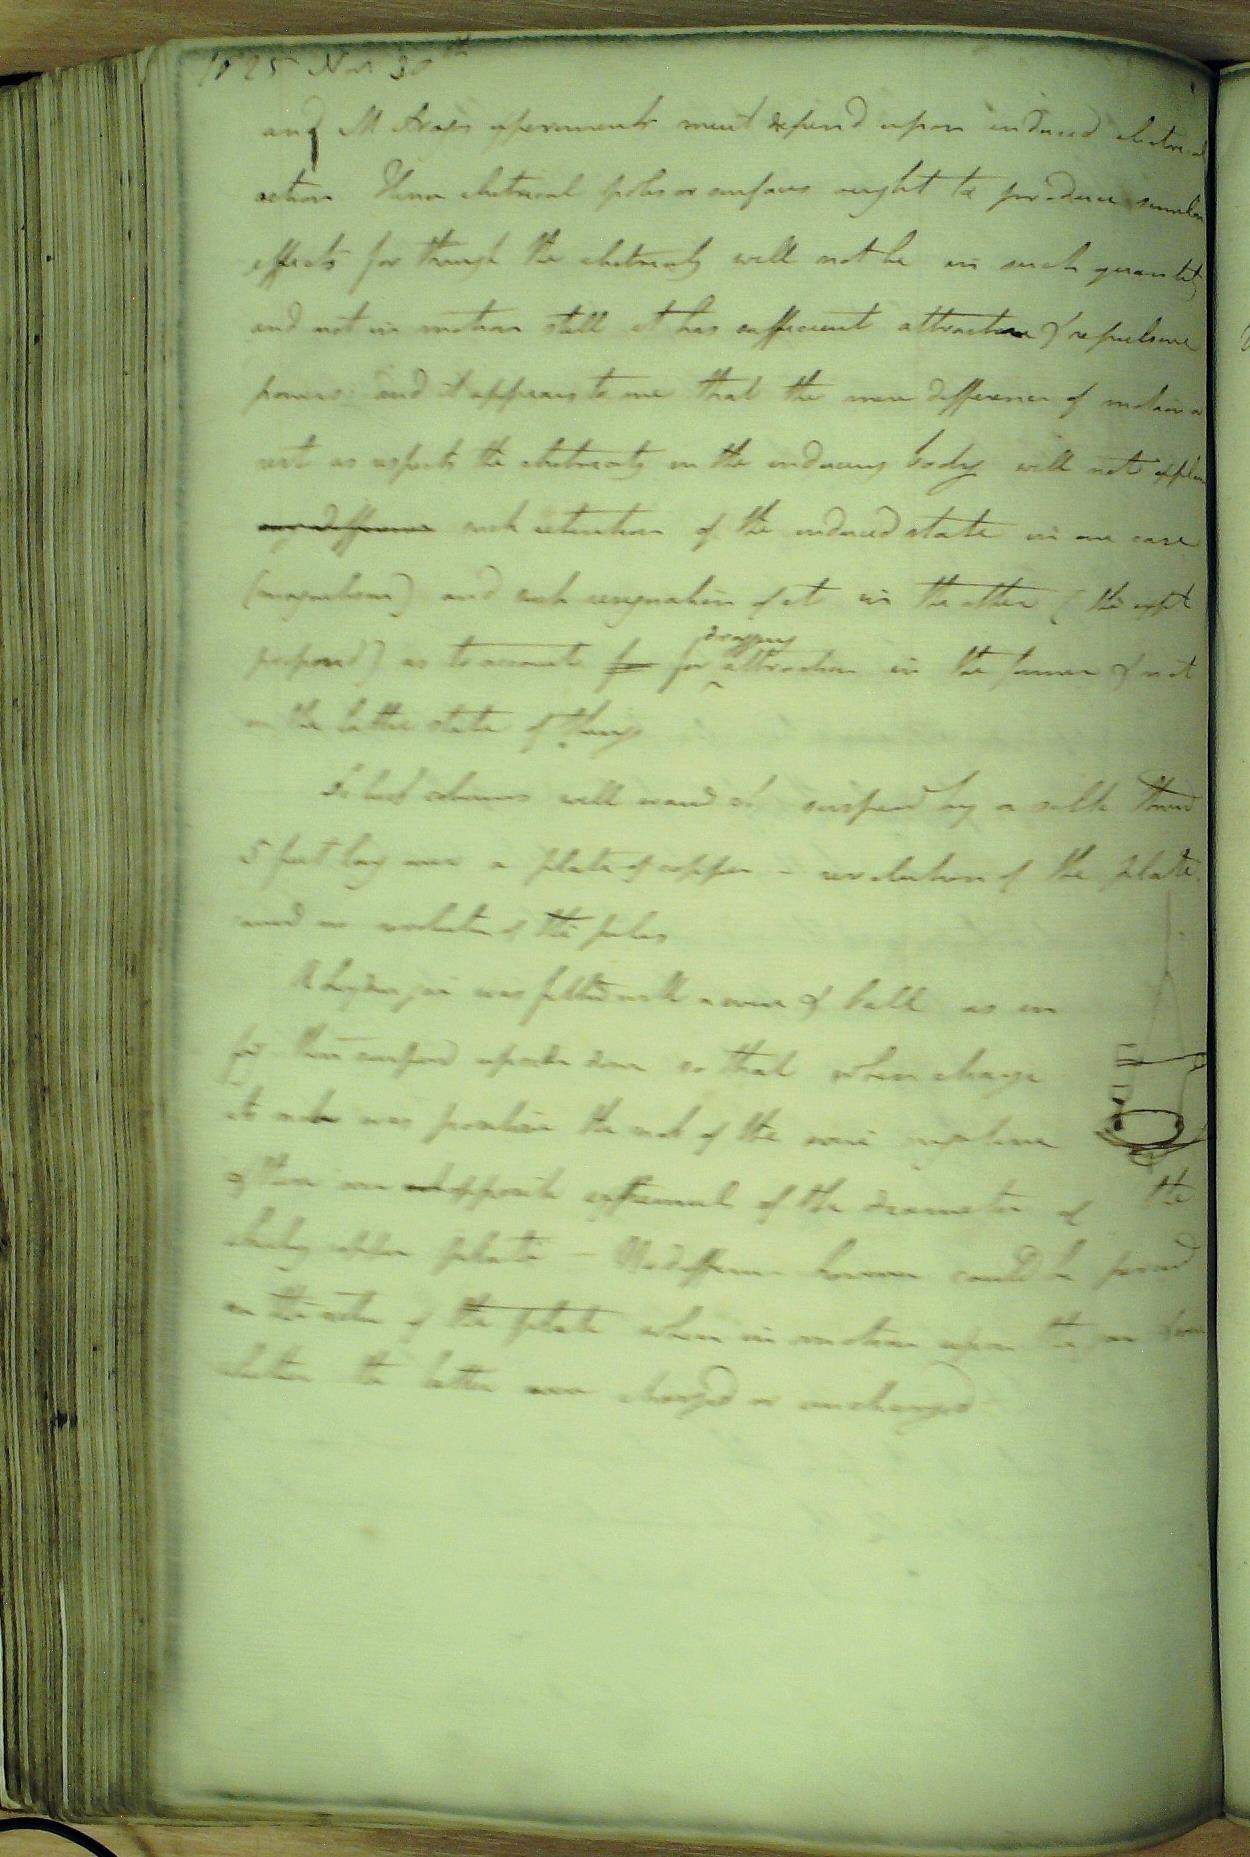 1825 Nov 30th
and M Aragos experiments must depend upon induced electrical
action Hence electrical poles or surfaces ought to produce similar
effects for though the electricity will not be in such quantity
and not in motion still it has sufficient attractive & repulsive
powers and it appears to me that the mere difference of motion or
rest as respects the electricity in the inducing body will not explain
any difference such retention of the induced state in one case
(magnetism) and such resignation of it in the other (the expt
proposed) as to account for for dragging attraction in the former & not
in the latter state of things
De Lucs columns well suspend by a silk thread
5 feet long over a plate of copper - revolution of the plate
caused no revolution of the poles
A Leyden jar was fitted with a wire & ball as in
fig then suspend upside down so that when charge
its was positive the end of the wire negative
& these over opposite of the diameter of the
copper plate - No difference however could be found
in the of the plate when in motion upon the jar &
whether the latter were charged or uncharged